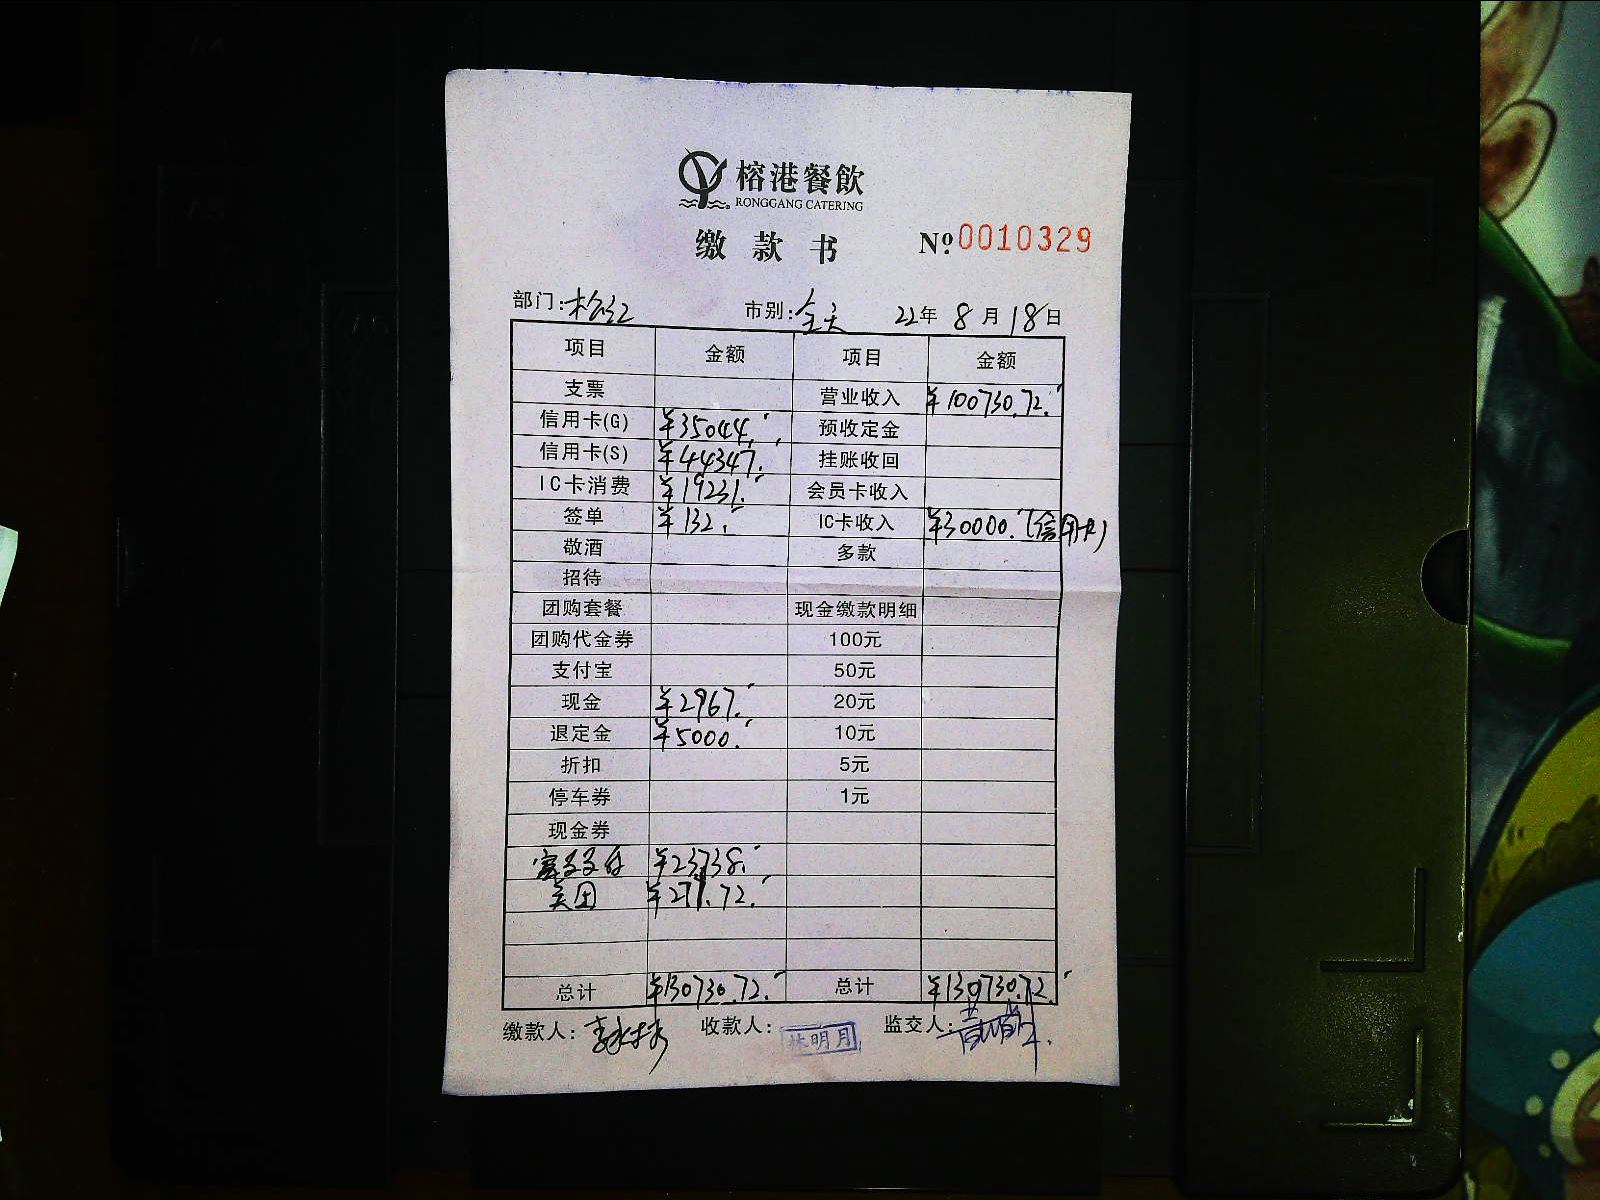 榕港餐飲
RONGGANG CATERING
缴款书 Nº 0010329
部门: 市别:全天 22年 8月 18日
项目 金额 项目 金额
支票 营业收入 ¥100730.72.
信用卡(G) ¥35044. 预收定金
信用卡(S) ¥44347. 挂账收回
IC卡消费 ¥19231. 会员卡收入
签单 ¥132. IC卡收入 ¥30000.(信用卡)
敬酒 多款
招待
团购套餐 现金缴款明细
团购代金券 100元
支付宝 50元
现金 ¥2967. 20元
退定金 ¥5000. 10元
折扣 5元
停车券 1元
现金券
¥23738.
美团 ¥271.72.
总计 ¥130730.72. 总计 ¥130730.72.
缴款人: 收款人: 林明月 监交人: